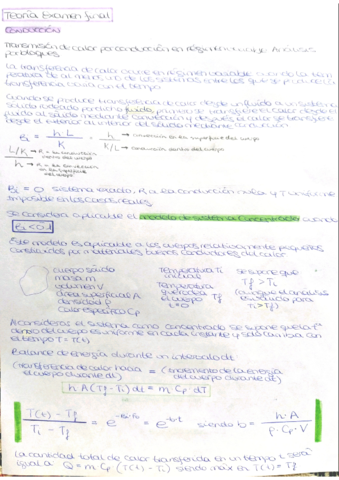 Teoría Examen final
CONDUCCIÓN
Transmisión de calor por conducción en régimen transitorio. Análisis
por bloques
La transferencia de calor ocurre en régimen variable cuando la tem
peratura de al menos uno de los sistemas entre los que se produce la
transferencia varía con el tiempo.
Cuando se produce transferencia de calor desde un fluido a un sistema
sólido rodeado por dicho fluido, primero se transfiere el calor desde el
fluido al sólido mediante convección y después el calor se transfiere
desde el exterior al interior del sólido mediante conducción
Bi = h·L / K = h / K/L → convección en la superficie del cuerpo
→ conducción dentro del cuerpo
L/K → R a la conducción
dentro del cuerpo
h → R a la convección
en la superficie
del cuerpo
Bi = 0 sistema exacto, R a la conducción nula y T uniforme
imposible en los casos reales.
Se considera aplicable el modelo de sistema concentrado cuando
Bi < 0,1
Este modelo es aplicable a los cuerpos relativamente pequeños
constituidos por materiales buenos conductores del calor
cuerpo sólido
masa m
volumen V
área superficial A
densidad ρ
Calor específico Cp
Temperatura Ti
inicial
Temperatura
que rodea
el cuerpo Tf
t=0
se supone que
Tf > Ti
(aunque el análisis
es válido para
Ti > Tf)
Al considerar el sistema como concentrado se supone que la T
dentro del cuerpo es uniforme en cada instante y solo cambia con
el tiempo T = T(t)
Balance de energía durante un intervalo dt
(transferencia de calor hacia el cuerpo durante dt) = (incremento de la energía del cuerpo durante dt)
h A (Tf - Ti) dt = m Cp · dT
T(t) - Tf / Ti - Tf = e^-Bi·Fo = e^-b·t siendo b = h·A / ρ·Cp·V
La cantidad total de calor transferida en un tiempo t será
igual a Q = m Cp (T(t) - Ti) siendo máx en T(t) = Tf